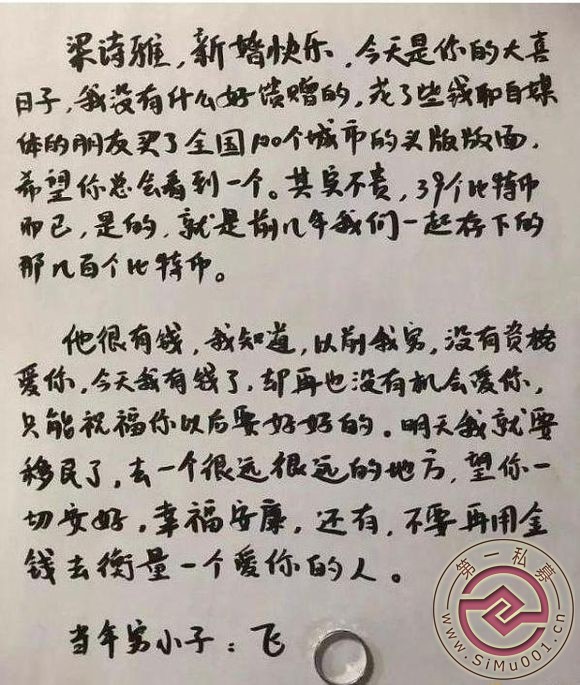 梁诗雅，新婚快乐，今天是你的大喜
日子，我没有什么好馈赠的，花了些钱聊自媒
体的朋友买了全国100个城市的头版版面，
希望你总会看到一个。其实不贵，39个比特币
而已，是的，就是前几年我们一起存下的
那几百个比特币。
他很有钱，我知道，以前我穷，没有资格
爱你，今天我有钱了，却再也没有机会爱你，
只能祝福你以后要好好的。明天我就要
移民了，去一个很远很远的地方，望你一
切安好，幸福安康，还有，不要再用金
钱去衡量一个爱你的人。
当年穷小子：飞
第一私募
www.SiMu001.cn